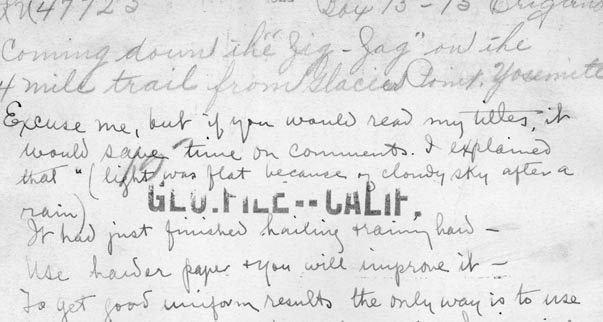 LN47723 Box 13-13 Original
Coming down the "Zig-Zag" on the
4 mile trail from Glacier Point. Yosemite
Excuse me, but if you would read my titles, it
would save time on comments. I explained
that "(light was flat because of cloudy sky after a
rain)
GEO. FILE -- CALIF.
It had just finished hailing & raining hard -
Use harder paper & you will improve it -
To get good uniform results the only way is to use